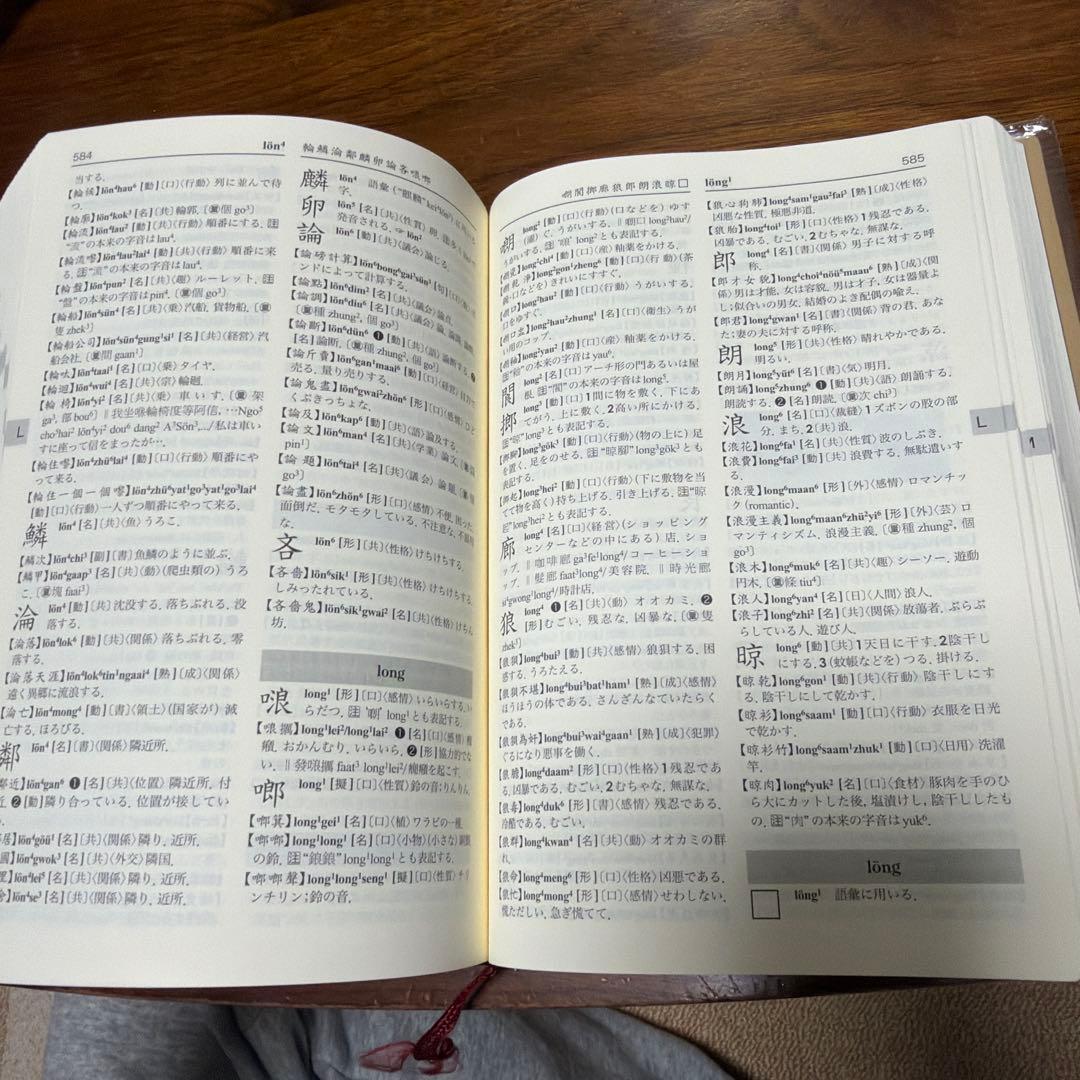 584
lön⁴
輪鱗淪鄰麟卵論吝
当する.
【輪候】lön⁴hau⁶[動]〔口〕〈行動〉列に並んで待つ.
【輪廓】lön⁴kok³[名]〔共〕輪郭.(量個 go³)
【輪流】lön⁴lau⁴[動]〔共〕〈行動〉順番にする. 注“流”の本来の字音は lau⁴.
【輪流嚟】lön⁴lau⁴lai⁴[動]〔共〕〈行動〉順番に来る. 注“流”の本来の字音は lau⁴.
【輪盤】lön⁴pun²[名]〔共〕〈趣〉ルーレット. 注“盤”の本来の字音は pin⁴.(量個 go³)
【輪船】lön⁴sün⁴[名]〔共〕〈乗〉汽船. 貨物船.(量隻 zhek³)
【輪船公司】lön⁴sün⁴gung¹si¹[名]〔共〕〈経営〉汽船会社.(量間 gaan¹)
【輪呔】lön⁴taai¹[名]〔口〕〈乗〉タイヤ.
【輪迴】lön⁴wui⁴[名]〔共〕〈宗〉輪廻.
【輪椅】lön⁴yi²[名]〔口〕〈乗〉車いす.(量架 ga³, 部 bou⁶)‖我坐喺輪椅度等阿信, …Ngo⁵ cho⁵hai² lön⁴yi² dou⁶ dang² A³Sön³,.../私は車いすに座って信をまったが….
【輪住嚟】lön⁴zhü⁶lai⁴[動]〔口〕〈行動〉順番にやって来る.
【輪住一個一個嚟】lön⁴zhü⁶yat¹go³yat¹go³lai⁴[動]〔口〕〈行動〉一人ずつ順番にやって来る.
鱗 lön⁴[名]〔共〕〈魚〉うろこ.
【鱗次】lön⁴chi³[副]〔書〕魚鱗のように並ぶ.
【鱗甲】lön⁴gaap³[名]〔共〕〈動〉(爬虫類の)うろこ.(量塊 faai³)
淪 lön⁴[動]〔共〕沈没する. 落ちぶれる. 没落する.
【淪落】lön⁴lok⁶[動]〔共〕〈関係〉落ちぶれる. 零落する.
【淪落天涯】lön⁴lok⁶tin¹ngaai⁴[熟]〔成〕〈関係〉遠く異郷に流浪する.
【淪亡】lön⁴mong⁴[動]〔書〕〈領土〉(国家が)滅亡する. ほろびる.
鄰 lön⁴[名]〔書〕〈関係〉隣近所.
鄰近】lön⁴gan⁶ ❶[名]〔共〕〈位置〉隣近所. 付近 ❷[動]隣り合っている. 位置が接している.
居】lön⁴göü¹[名]〔共〕〈関係〉隣り. 近所.
國】lön⁴gwok³[名]〔共〕〈外交〉隣国.
里】lön⁴lei⁵[名]〔共〕〈関係〉隣り. 近所.
舍】lön⁴se³[名]〔共〕〈関係〉隣り. 近所.
麟 lön⁴ 語彙(“麒麟”kei⁴lön⁴)に用いる字.
卵 lön⁵[名]〔共〕
発音される. ☞lön²
論 lön⁶[動]〔共〕〈議会〉論じる.
【論磅計算】lön⁶bong⁶gai³sün³[句]〔口〕
ンドによって計算する.
【論點】lön⁶dim²[名]〔共〕〈議会〉論点.
【論調】lön⁶diu⁶[名]〔共〕〈議会〉論調.(量種 zhung², 個 go³)
【論斷】lön⁶dün⁶ ❶[動]〔語〕論断する. ❷[名]論断.(量種 zhung², 個 go³)
【論斤賣】lön⁶gan¹maai⁶[動]〔口〕〈経営〉目方で売る. 量り売りする.
【論鬼盡】lön⁶gwai²zhön⁶[形]〔口〕〈感情〉ひどくぶきっちょな.
【論及】lön⁶kap⁶[動]〔共〕〈語〉論及する.
【論文】lön⁶man⁴[名]〔共〕〈学業〉論文.(量篇 pin¹)
【論題】lön⁶tai⁴[名]〔共〕〈議会〉論題.(量個 go³)
【論盡】lön⁶zhön⁶[形]〔口〕〈感情〉不便. 困った. 面倒だ. モタモタしている. 不注意な. 不器用な.
吝 lön⁶[形]〔共〕〈性格〉けちけちする.
【吝嗇】lön⁶sik¹[形]〔共〕〈性格〉けちけちする. しみったれている.
【吝嗇鬼】lön⁶sik¹gwai²[名]〔共〕〈性格〉けちん坊.
long
㗄 long¹[形]〔口〕〈感情〉いらいらする. いらだつ. 注 long¹ とも表記する.
long¹lei²/long¹lai² ❶[名]〔口〕〈感情〉癇癪. おかんむり. いらいら. ❷[形]協力的でない.
啷 long¹[擬]〔口〕〈性質〉鈴の音:りんりん.
【啷箕】long¹gei¹[名]〔口〕〈植〉ワラビの一種.
【啷啷】long¹long¹[名]〔口〕〈小物〉(小さな)銅製の鈴. 注“鋃鋃”long¹long¹ とも表記する.
【啷啷聲】long¹long¹seng¹[擬]〔口〕〈性質〉チリンチリン;鈴の音.
585
löng¹
閬㨍廊狼郎朗浪晾□
long²[動]〔口〕〈行動〉(口などを)ゆすぐ. うがいする. long²hau²/ long²とも表記する.
long²chi⁴[動]〔口〕〈産〉釉薬をかける.
乾淨】long²gon¹zheng⁶[動]〔口〕〈行動〉(茶碗・口などを)きれいにすすぐ.
口】long²hau²[動]〔口〕〈行動〉うがいする. 口をゆすぐ.
口盅】long²hau²zhung¹[名]〔口〕〈衛生〉うがい用のコップ.
釉】long²yau²[動]〔口〕〈産〉釉薬をかける. 注“釉”の本来の字音は yau⁶.
閬 long²[名]〔口〕アーチ形の門あるいは屋根. 注“閬”の本来の字音は long⁵.
long³[動]〔口〕1間に物を敷く. 下にあてがう. 上に敷く. 2高い所にかける. 注“晾”long³ とも表記する.
脚】long³gök³[動]〔口〕〈行動〉(物の上に)足を置く. 足をのせる. 注“晾脚”long³gök³ とも表記する.
起】long³hei²[動]〔口〕〈行動〉(下に敷物を当てて物を高く)持ち上げる. 引き上げる. 注“晾起”long³hei² とも表記する.
廊 long⁴[名]〔口〕〈経営〉(ショッピングセンターなどの中にある)店. ショップ. ‖咖啡廊 ga³fe¹long⁴/コーヒーショップ. ‖髮廊 faat³long⁴/美容院. ‖時光廊 si⁴gwong¹long⁴/時計店.
狼 long⁴ ❶[名]〔共〕〈動〉オオカミ. ❷[形]むごい. 残忍な. 凶暴な.(量隻 zhek³)
【狼狽】long⁴bui³[動]〔共〕〈感情〉狼狽する. 困惑する. うろたえる.
【狼狽不堪】long⁴bui³bat¹ham¹[熟]〔成〕〈感情〉ほうほうの体である. さんざんなていたらくである.
【狼狽為奸】long⁴bui³wai⁴gaan¹[熟]〔成〕〈犯罪〉ぐるになり悪事を働く.
【狼膽】long⁴daam²[形]〔口〕〈性格〉1残忍である. 凶暴である. むごい. 2むちゃな. 無謀な.
【狼毒】long⁴duk⁶[形]〔書〕〈感情〉残忍である. 冷酷である. むごい.
【狼群】long⁴kwan⁴[名]〔共〕〈動〉オオカミの群れ.
【狼命】long⁴meng⁶[形]〔口〕〈性格〉凶悪である.
【狼忙】long⁴mong⁴[形]〔口〕〈感情〉せわしない. 慌ただしい. 急ぎ慌てて.
【狼心狗肺】long⁴sam¹gau²fai³[熟]〔成〕〈性格〉凶悪な性質. 極悪非道.
【狼胎】long⁴toi¹[形]〔口〕〈性格〉1残忍である. 凶暴である. むごい. 2むちゃな. 無謀な.
郎 long⁴[名]〔書〕〈関係〉男子に対する呼称.
【郎才女貌】long⁴choi⁴nöü⁵maau⁶[熟]〔成〕〈関係〉男は才能, 女は容貌. 男は才子, 女は器量よし;似合いの男女. 結婚のよき配偶の喩え.
【郎君】long⁴gwan¹[名]〔書〕〈関係〉背の君. あなた;妻の夫に対する呼称.
朗 long⁵[形]〔共〕〈性格〉晴れやかである. 明るい.
【朗月】long⁵yüt⁶[名]〔書〕〈気〉明月.
【朗誦】long⁵zhung⁶ ❶[動]〔共〕〈語〉朗誦する. 朗読する. ❷[名]朗読.(量次 chi³)
浪 long⁶[名]〔口〕〈裁縫〉1ズボンの股の部分. まち. 2〔共〕浪.
【浪花】long⁶fa¹[名]〔共〕〈性質〉波のしぶき.
【浪費】long⁶fai³[動]〔共〕浪費する. 無駄遣いする.
【浪漫】long⁶maan⁶[形]〔外〕〈感情〉ロマンチック(romantic).
【浪漫主義】long⁶maan⁶zhü²yi⁶[形]〔外〕〈芸〉ロマンティシズム. 浪漫主義.(量種 zhung², 個 go³)
【浪木】long⁶muk⁶[名]〔共〕〈趣〉シーソー. 遊動円木.(量條 tiu⁴)
【浪人】long⁶yan⁴[名]〔日〕〈人間〉浪人.
【浪子】long⁶zhi²[名]〔共〕〈関係〉放蕩者. ぶらぶらしている人. 遊び人.
晾 long⁶[動]〔共〕1天日に干す. 2陰干しにする. 3(蚊帳などを)つる. 掛ける.
【晾乾】long⁶gon¹[動]〔共〕〈行動〉陰干しにする. 陰干しにして乾かす.
【晾衫】long⁶saam¹[動]〔口〕〈行動〉衣服を日光で乾かす.
【晾衫竹】long⁶saam¹zhuk¹[名]〔口〕〈日用〉洗濯竿.
【晾肉】long⁶yuk²[名]〔口〕〈食材〉豚肉を手のひら大にカットした後, 塩漬けし, 陰干ししたもの. 注“肉”の本来の字音は yuk⁶.
löng
□ löng¹ 語彙に用いる.
L
L
1